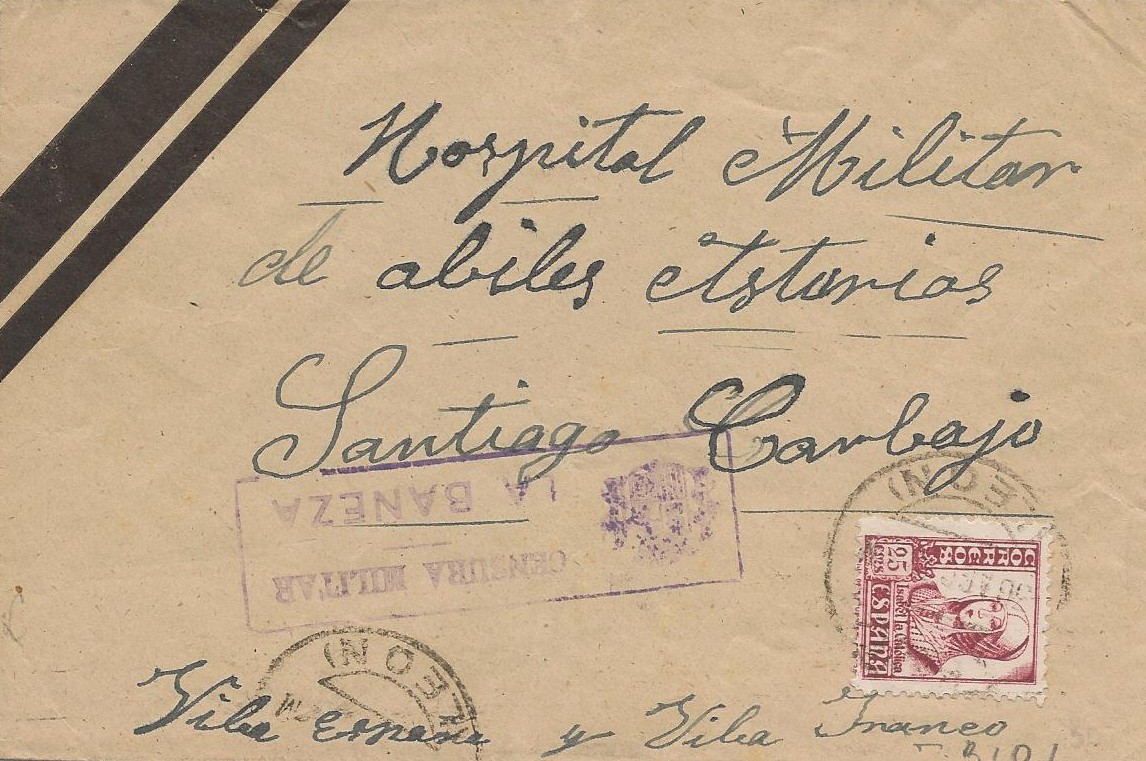 Hospital Militar
de abiles Asturias
Santiago Carbajo
CENSURA MILITAR
LA BAÑEZA
LEON
CORREOS
25
CTS
ESPAÑA
Isabel la Católica
LEON
Viba España y Viba Franco